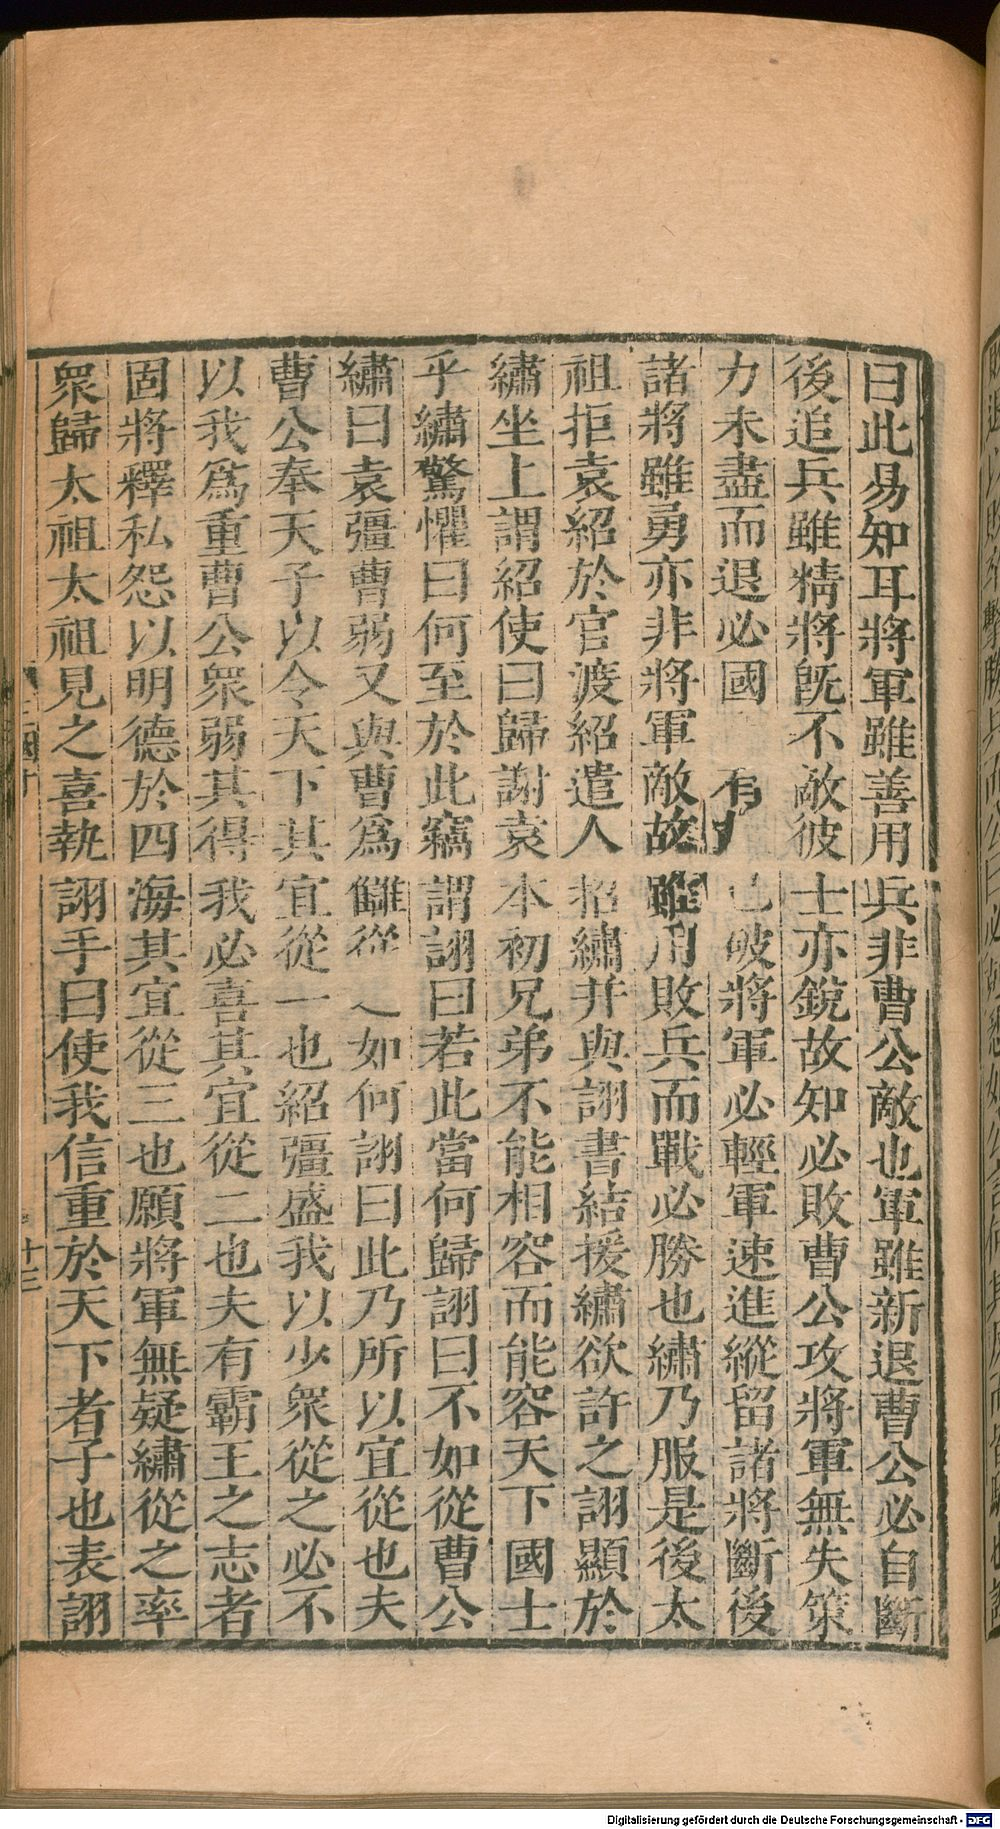 曰此易知耳將軍雖善用兵非曹公敵也軍雖新退曹公必自斷
後追兵雖精將旣不敵彼士亦銳故知必敗曹公攻將軍無失策
力未盡而退必國有已破將軍必輕軍速進縱留諸將斷後
諸將雖勇亦非將軍敵故雖用敗兵而戰必勝也繡乃服是後太
祖拒袁紹於官渡紹遣人招繡幷與詡書結援繡欲許之詡顯於
繡坐上謂紹使曰歸謝袁本初兄弟不能相容而能容天下國士
乎繡驚懼曰何至於此竊謂詡曰若此當何歸詡曰不如從曹公
繡曰袁彊曹弱又與曹爲讎從如何詡曰此乃所以宜從也夫
曹公奉天子以令天下其宜從一也紹彊盛我以少衆從之必不
以我爲重曹公衆弱其得我必喜其宜從二也夫有霸王之志者
固將釋私怨以明德於四海其宜從三也願將軍無疑繡從之率
衆歸太祖太祖見之喜執詡手曰使我信重於天下者子也表詡
十三
Digitalisierung gefördert durch die Deutsche Forschungsgemeinschaft - DFG